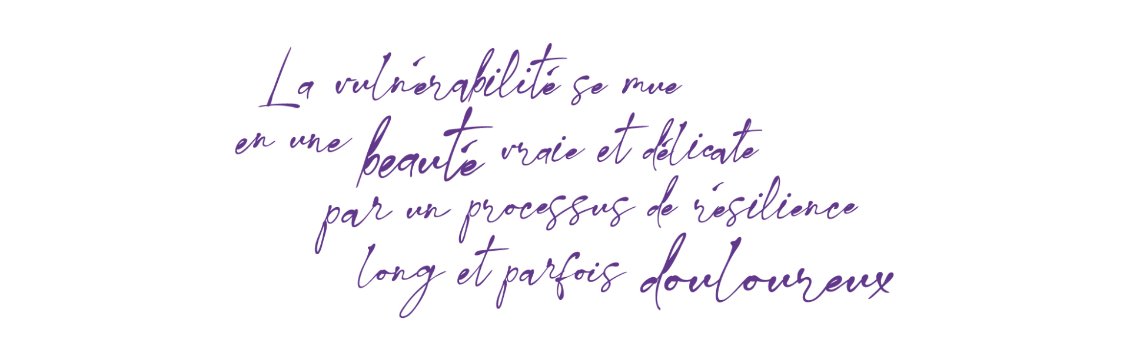 La vulnérabilité se mue
en une beauté vraie et délicate
par un processus de résilience
long et parfois douloureux